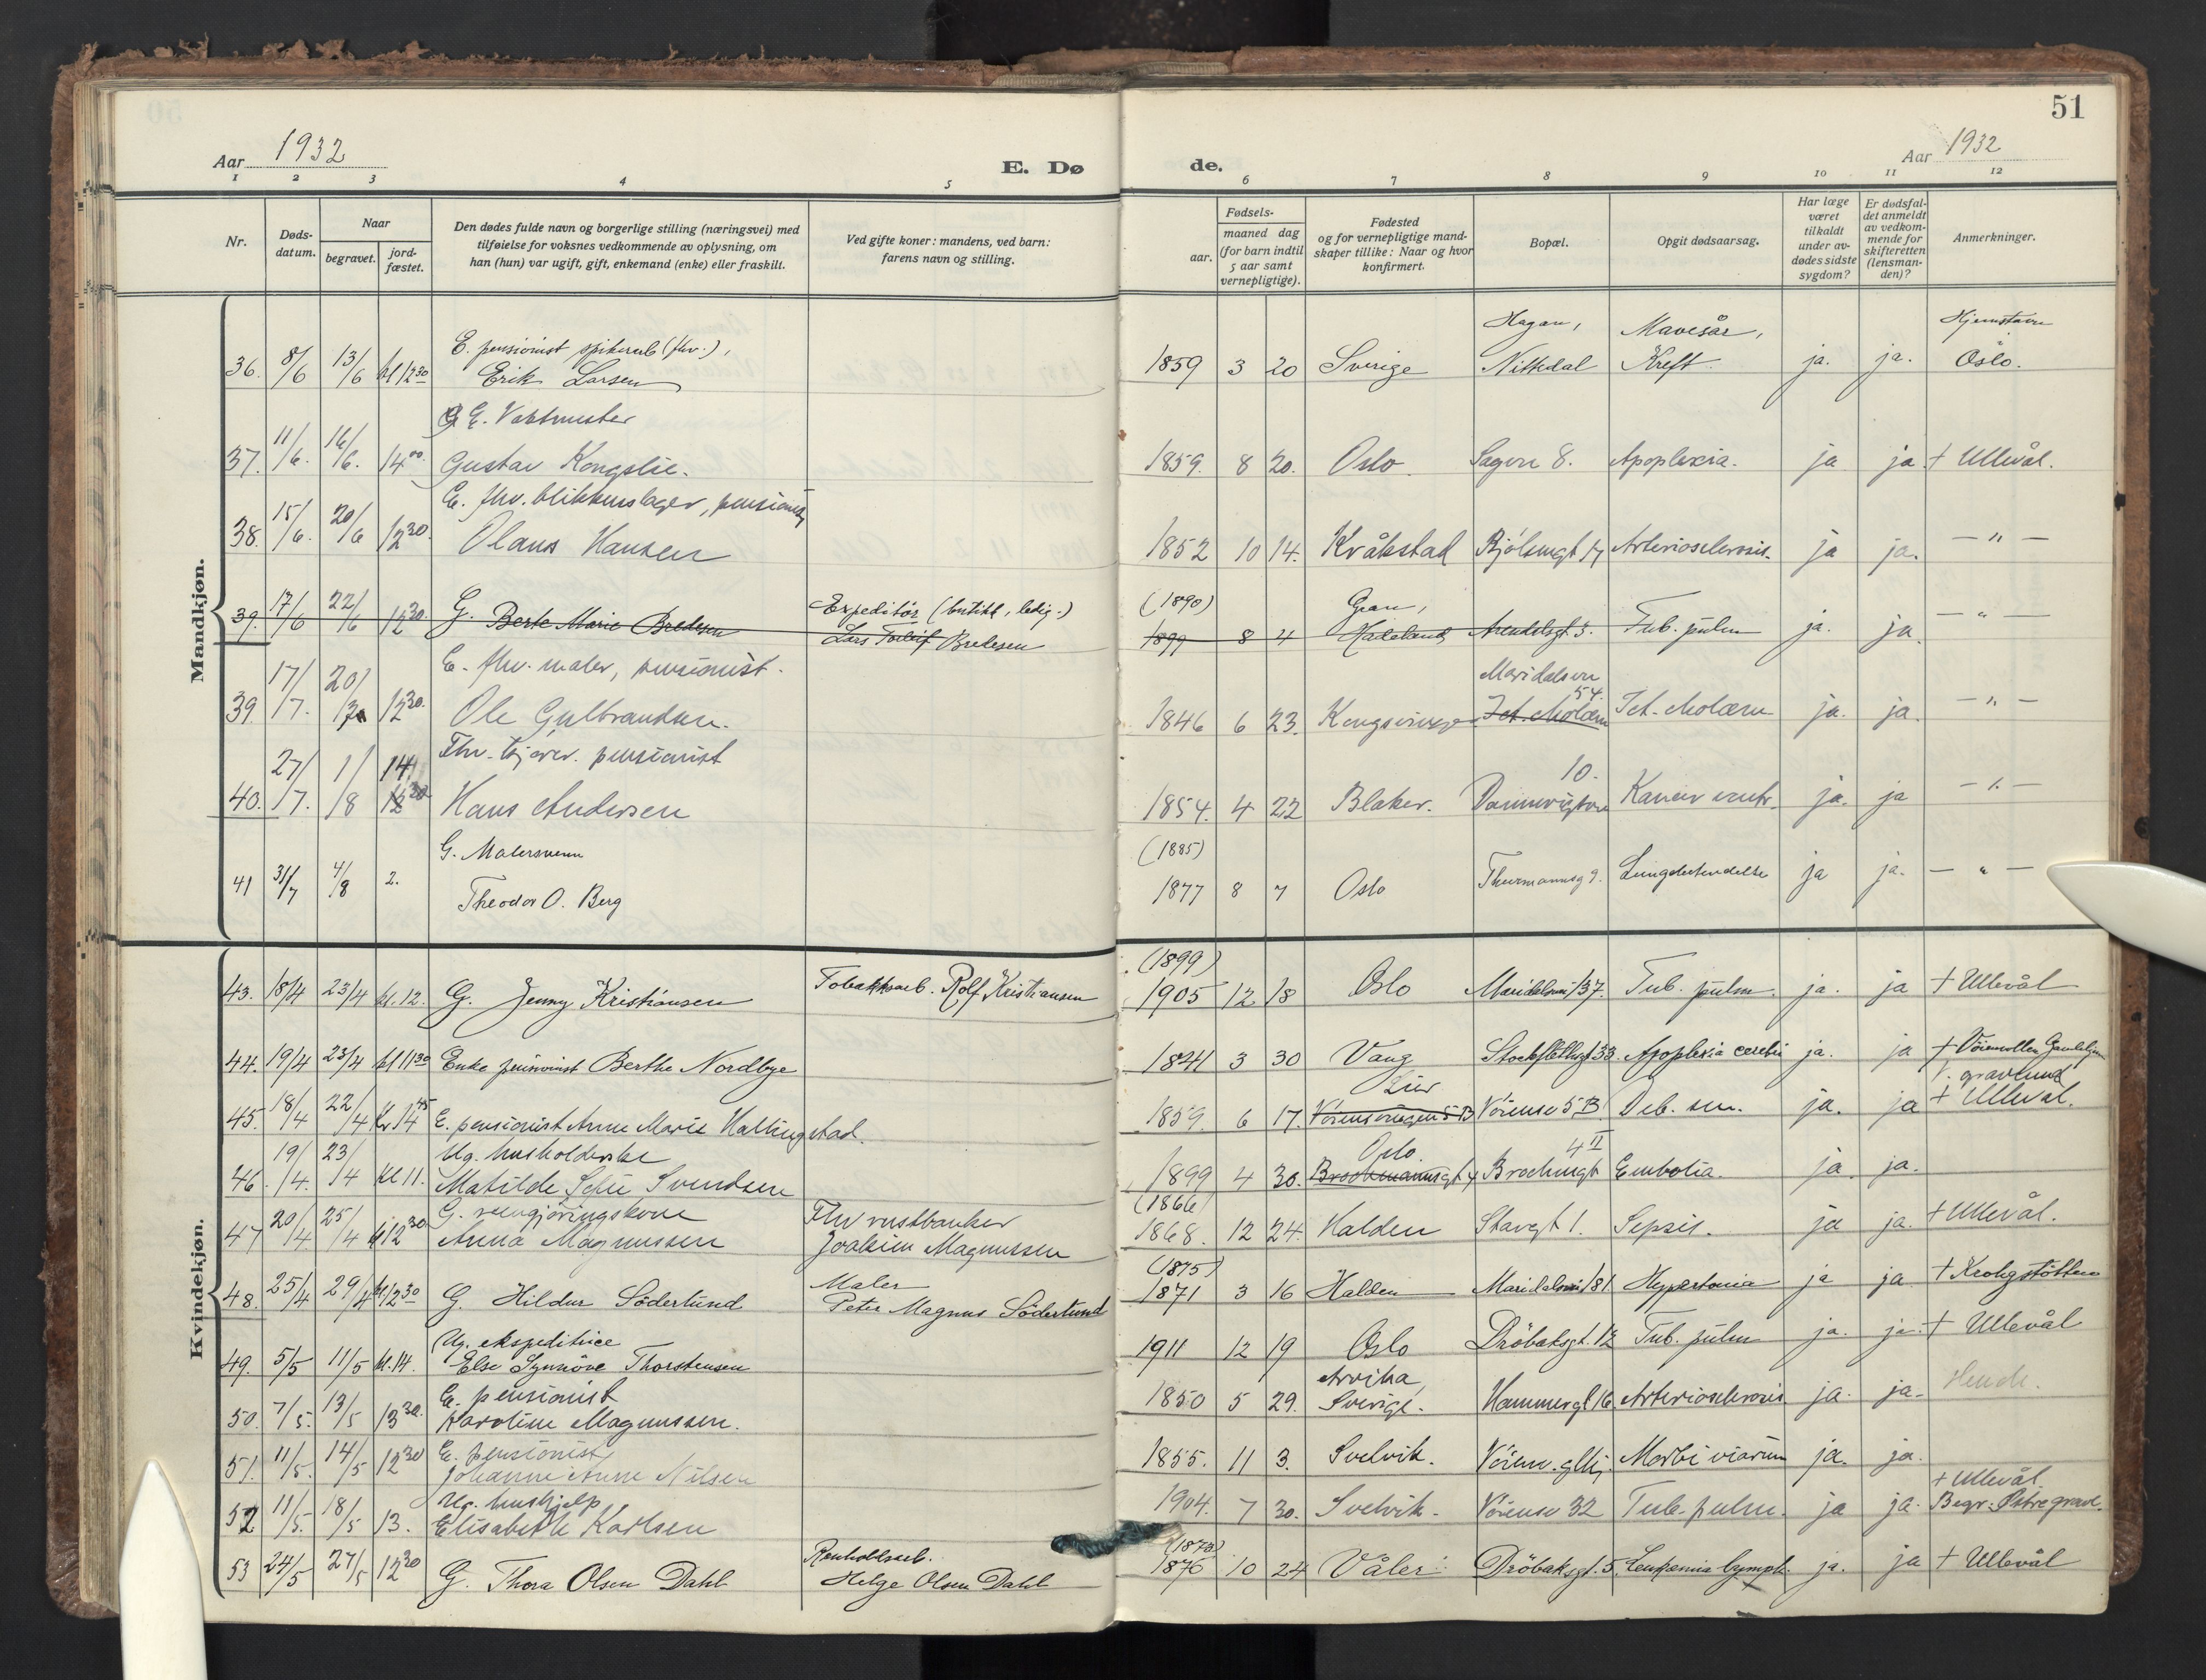 51
Aar 1932
E. Dø
de.
Aar 1932
1 2 3 4 5 6 7 8 9 10 11 12
Nr.
Døds-
datum.
Naar
begravet.
jord-
fæstet.
Den dødes fulde navn og borgerlige stilling (næringsvei) med
tilføielse for voksnes vedkommende av oplysning, om
han (hun) var ugift, gift, enkemand (enke) eller fraskilt.
Ved gifte koner: mandens, ved barn:
farens navn og stilling.
Fødsels-
aar.
maaned dag
(for barn indtil
5 aar samt
vernepligtige).
Fødested
og for vernepligtige mand-
skaper tillike: Naar og hvor
konfirmert.
Bopæl.
Opgit dødsaarsag.
Har læge
været
tilkaldt
under av-
dødes sidste
sygdom?
Er dødsfal-
det anmeldt
av vedkom-
mende for
skifteretten
(lensman-
den)?
Anmerkninger.
Mandkjøn.
E. pensionist spikerarb (fhv.), Hagan, Mavesår, Hjemstavn
36. 8/6 13/6 kl 12 30 Erik Larsen 1859 3 20 Sverige Nittedal Kreft. ja. ja. Oslo.
E. Vaktmester
37. 11/6. 16/6. 14 00. Gustav Kongslie. 1859. 8 20. Oslo. Sagvn 8. Apoplexia. ja ja + Ullevål.
E. fhv. blikkenslager, pensionist
38. 15/6. 20/6 12 30. Olaus Hansen 1852 10 14. Kråkstad Bjölsengt 17 Arteriosclerosis. ja ja. — " —
Expeditör (butikk, ledig.) (1890) Gran,
39. 17/6 22/6 12 30. G. Berte Marie Bredesen Lars Bredesen 1899 8 4 Hadeland Arendalsgt 3. Tub. pulm ja. ja. — " —
E. fhv. maler, pensionist. Maridalsvn
39. 17/7. 20/7 12 30. Ole Gulbrandsen. 1846 6 23. Kongsvinger 54. Ict. cholæm ja. ja. — " —
Fhv. kjörer. pensionist 10.
40. 27/7. 1/8 14 12 30 Hans Andersen 1854. 4 22 Blaker. Kancer ventr. ja. ja — " —
G. Malersvenn (1885)
41 31/7 4/8 2. Theodor O. Berg 1877 8 7 Oslo Thurmannsg 9. Lungebetendelse ja ja. — " —
Kvindekjøn.
(1899)
43. 18/4 23/4 kl. 12. G. Jenny Kristiansen Tobakksarb. Rolf Kristiansen 1905 12 18 Oslo Maridalsvei 137. Tub. pulm. ja. ja + Ullevål
44. 19/4 23/4 kl 11 30 Enke pensionist Berthe Nordbye 1841 3 30 Vang Stockflethsgt 33. Apoplexia cerebri ja. ja + Vöienvollen Gamlehjem
Lier gravlund
45. 18/4 22/4 Kl 14 45 E. pensionist Anne Marie Hallingstad. 1859. 6 17. Vöiensvingen 5B Vöiensv 5 B Deb. sen. ja. ja + Ullevål.
Ug. husholderske Oslo. 4 II
46. 19/4. 23/4 kl 11. Matilde Sofie Svendsen 1899 4 30. Brochmannsgt 4 Brochmgt Embolia. ja. ja.
G. rengjöringskone Fhv rustbanker (1866)
47 20/4 25/4 kl 12 30 Anna Magnussen Joakim Magnussen 1868. 12 24. Halden Stavgt 1. Sepsis. ja ja. + Ullevål.
Maler (1875)
48. 25/4 29/4 kl 12 30 G. Hildur Söderlund Peter Magnus Söderlund 1871 3 16 Halden Maridalsvei 181 Hypertonia ja ja + Krohgstötten
Ug. ekspeditrice
49. 5/5 11/5 kl. 14. Else Synnöve Thorstensen 1911 12 19 Oslo Dröbaksgt. 12 Tub. pulm ja. ja. + Ullevål
E. pensionist Arvika,
50. 7/5. 13/5 13 30. Karoline Magnussen. 1850 5 29. Sverige. Hammergt 16. Arteriosclerosis ja. ja.
E. pensionist
51. 11/5. 14/5 12 30 Johanne Anne Nilsen 1855. 11 3. Svelvik. Morbi viarum ja. ja.
Ug. hushjelp + Ullevål.
52 11/5. 18/5 13. Elisabeth Karlsen 1904. 7 30. Svelvik. Vöiensv 32 Tub. pulm. ja ja. Begr: Östre gravl.
Renholdsarb. (1873)
53 24/5 27/5 12 30 G. Thora Olsen Dahl Helge Olsen Dahl 1876 10 24 Våler Dröbaksgt. 5. Leukæmia lymph. ja. ja + Ullevål